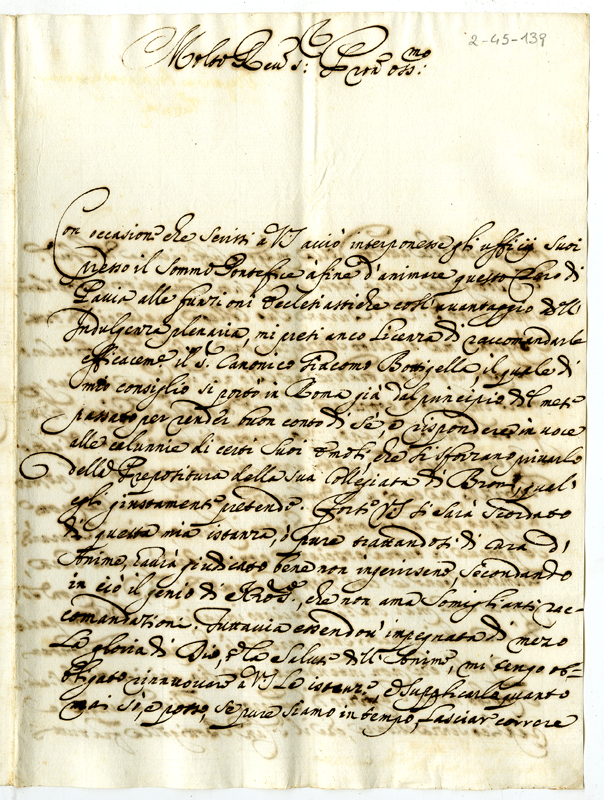 2-45-139
Molto Rev. S.r Pron. oss.mo
Con occasione che scrissi a VS acciò interponesse gli ufficij suoi
presso il Sommo Pontefice à fine d'animare questo Clero di
Pavia alle funzioni Ecclesiastiche coll'avantaggio dell'
Indulgenza plenaria, mi presi anco licenza di raccomandarle
efficacem.e il S.r Canonico Giacomo Bottigella il quale di
mio consiglio si portò in Roma già dal principio del mese
passato per render buon conto di sé e rispondere in voce
alle calunnie di certi suoi Emoli, che si sforzano privarlo
della Prepositura della sua Collegiata di Broni, qual'
egli giustamente pretende. Forse VS si sarà scordato
di questa mia istanza, ò pure trattandosi di cura d'
Anime, havrà giudicato bene non ingerirsene, secondando
in ciò il genio di, che non ama somiglianti rac-
comandazioni. Tuttavia essendovi impegnata di mezo
La gloria di Dio, e la salute dell'Anime, mi tengo ob-
bligato rinnovare a VS Le istanze, e supplicarla quanto
mai sò, e posso, se pure siamo in tempo, lasciar correre